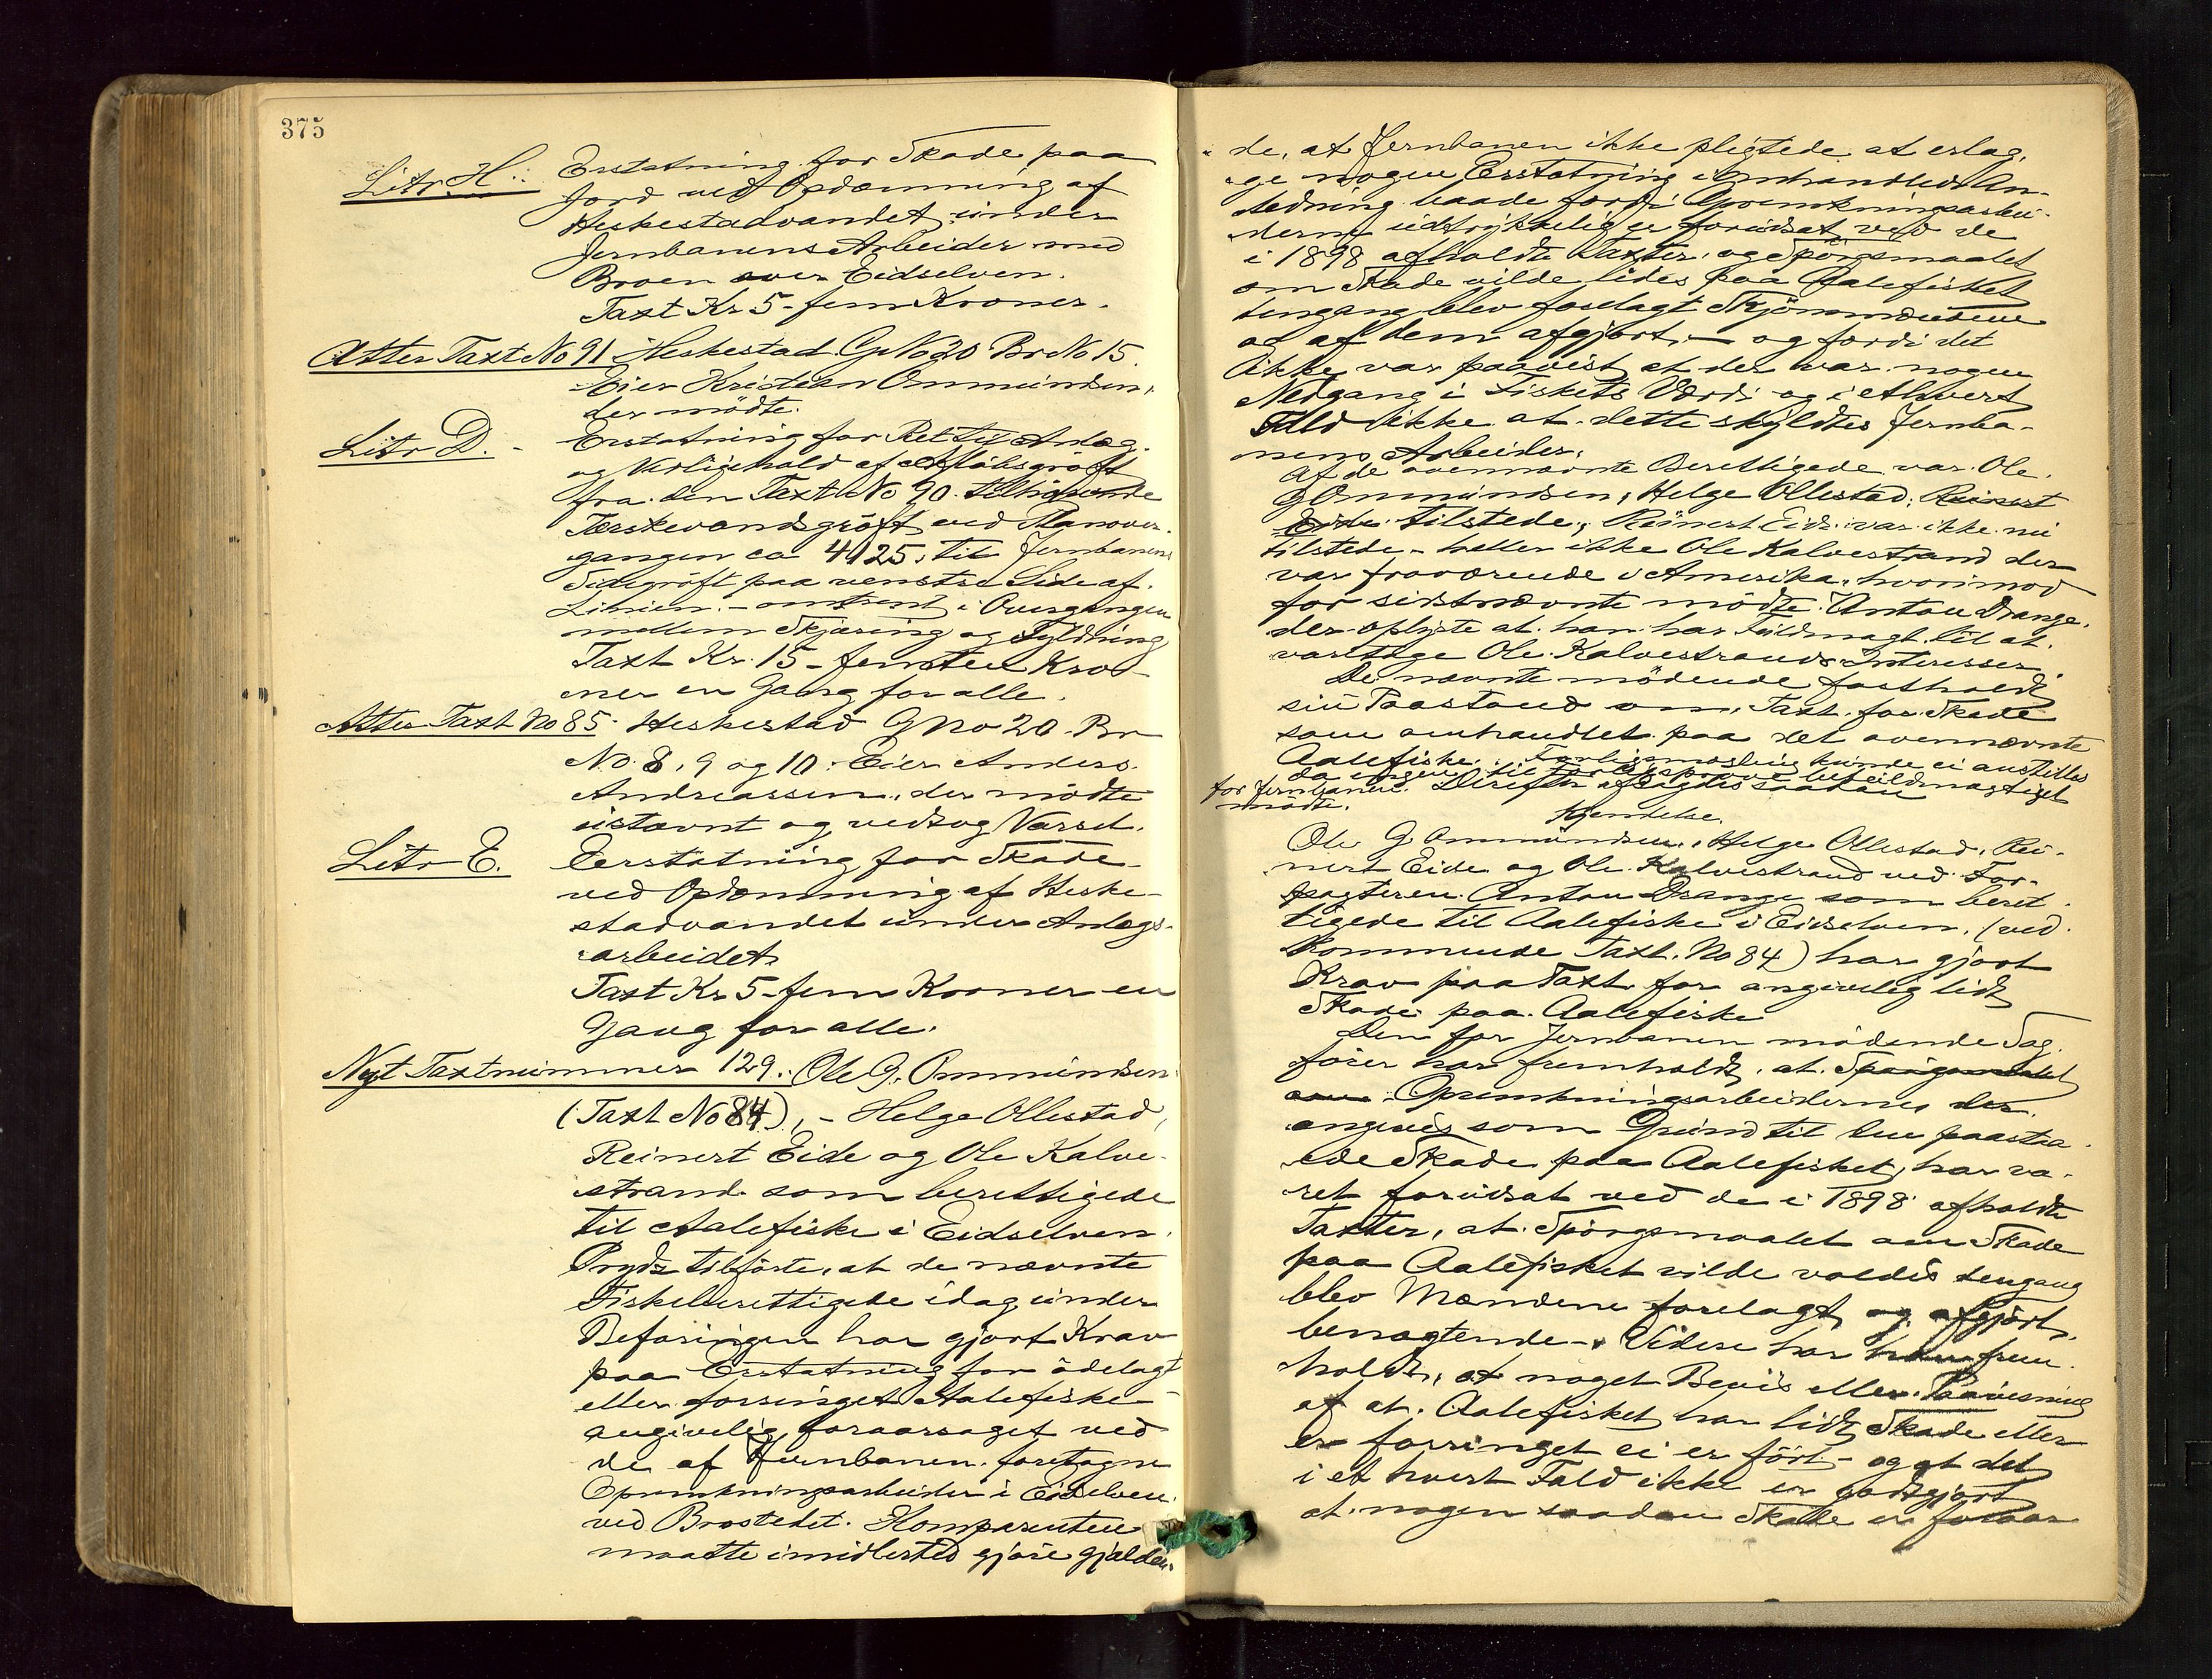 375
Litr. H.: Erstatning for Skade paa
Jord ved Opdæmning af
Heskestadvandet under
Jernbanens Arbeider med
Broen over Eidselven.
Taxt Kr 5 - fem Kroner.
Atter Taxt No 91 Heskestad G No 20 Br No 15.
Eier Kristian Ommundsen,
der mödte.
Litr D. - Erstatning for Ret til Anlæg
og Vedligehold af Aflöbsgröft
fra den Taxt No 90 tilhörende
Tærskevandsgröft ved Planover-
gangen ca 4125, til Jernbanens
Sidegröft paa venstre Side af
Linien. - omtrent i Overgangen
mellem Skjæring og Fyldning
Taxt Kr. 15 - femten Kro-
ner en Gang for alle.
Atter Taxt No 85. Heskestad G No 20. Br
No 8, 9 og 10. Eier Anders
Andreassen, der mödte
ustævnt og vedtog Varsel.
Litr E. Eerstatning for Skade
ved Opdæmming af Heske-
stadvandet under Anlægs-
arbeidet.
Taxt Kr 5 - fem Kroner en
Gang for alle.
Nyt Taxtnummer 129. Ole G. Ommundsen
(Taxt No 84), - Helge Ollestad,
Reinert Eide og Ole Kalve-
strand som berettigede
til Aalefiske i Eidselven.
Prydz tilförte, at de nævnte
Fiskeberettigede idag under
Befaringen har gjort Krav
paa Erstatning for ödelagt
eller forringet Aalefiske -
angivelig foraarsaget ved
de af Jernbanen foretagne
Oprenskningsarbeider i Eidselven
ved Brostedet. Komparenten
maatte imidlertid gjöre gjælden-
de, at Jernbanen ikke pligtede at erlæg-
ge nogen Erstatning i omhandlede An-
ledning baade fordi Oprenskningsarbei-
derne udtrykkelig er forudsat ved de
i 1898 afholdte Taxter, og Spörgsmaalet
om Skade vilde lides paa Aalefisket
dengang blev forelagt Skjönsmændene
og af dem afgjort, - og fordi det
ikke var paavist, at der var nogen
Nedgang i Fiskets Værdi og i ethvert
Fald ikke at dette skyldtes Jernba-
nens Arbeider.
Af de ovennævnte Berettigede var Ole
G Ommundsen, Helge Ollestad, Reinert
Eide tilstede, Reinert Eide var ikke nu
tilstede - heller ikke Ole Kalvestrand der
var fraværende i Amerika, hvorimod
for sidstnævnte mödte Anton Drange,
der oplyste at han har Fuldmagt til at
varetage Ole Kalvestrands Interesser.
De nævnte mödende fastholdt
sin Paastand om Taxt for Skade
som omhandlet paa det ovennævnte
Aalefiske. Forligsmægling kunde ei anstilles
da ingen til Forligsprøve befuldmægtiget
for Jernbanen mödte. Derefter afsagdes saadan
Kjendelse.
Ole G. Ommundsen, Helge Ollestad, Rei-
nert Eide og Ole Kalvestrand ved For-
pagteren Anton Drange som beret-
tigede til Aalefiske i Eidselven, (ved-
kommende Taxt. No 84) har gjort
Krav paa Taxt for angivelig lidt
Skade paa Aalefiske
Den for Jernbanen mödende Sag-
förer har fremholdt, at Spörgsmaalet
om Oprenskningsarbeiderne, der
angives som Grund til den paastaa-
ede Skade paa Aalefisket, har væ-
ret forudsat ved de i 1898 afholdte
Taxter, at Spörgsmaalet om Skade
paa Aalefisket vilde voldes dengang
blev Mændene forelagt og afgjort
benægtende -. Videre har han frem-
holdt, at noget Bevis eller Paavisning
af at Aalefisket har lidt Skade eller
er forringet ei er fört - og at det
i et hvert Fald ikke er godtgjort
at nogen saadan Skade er foraar-